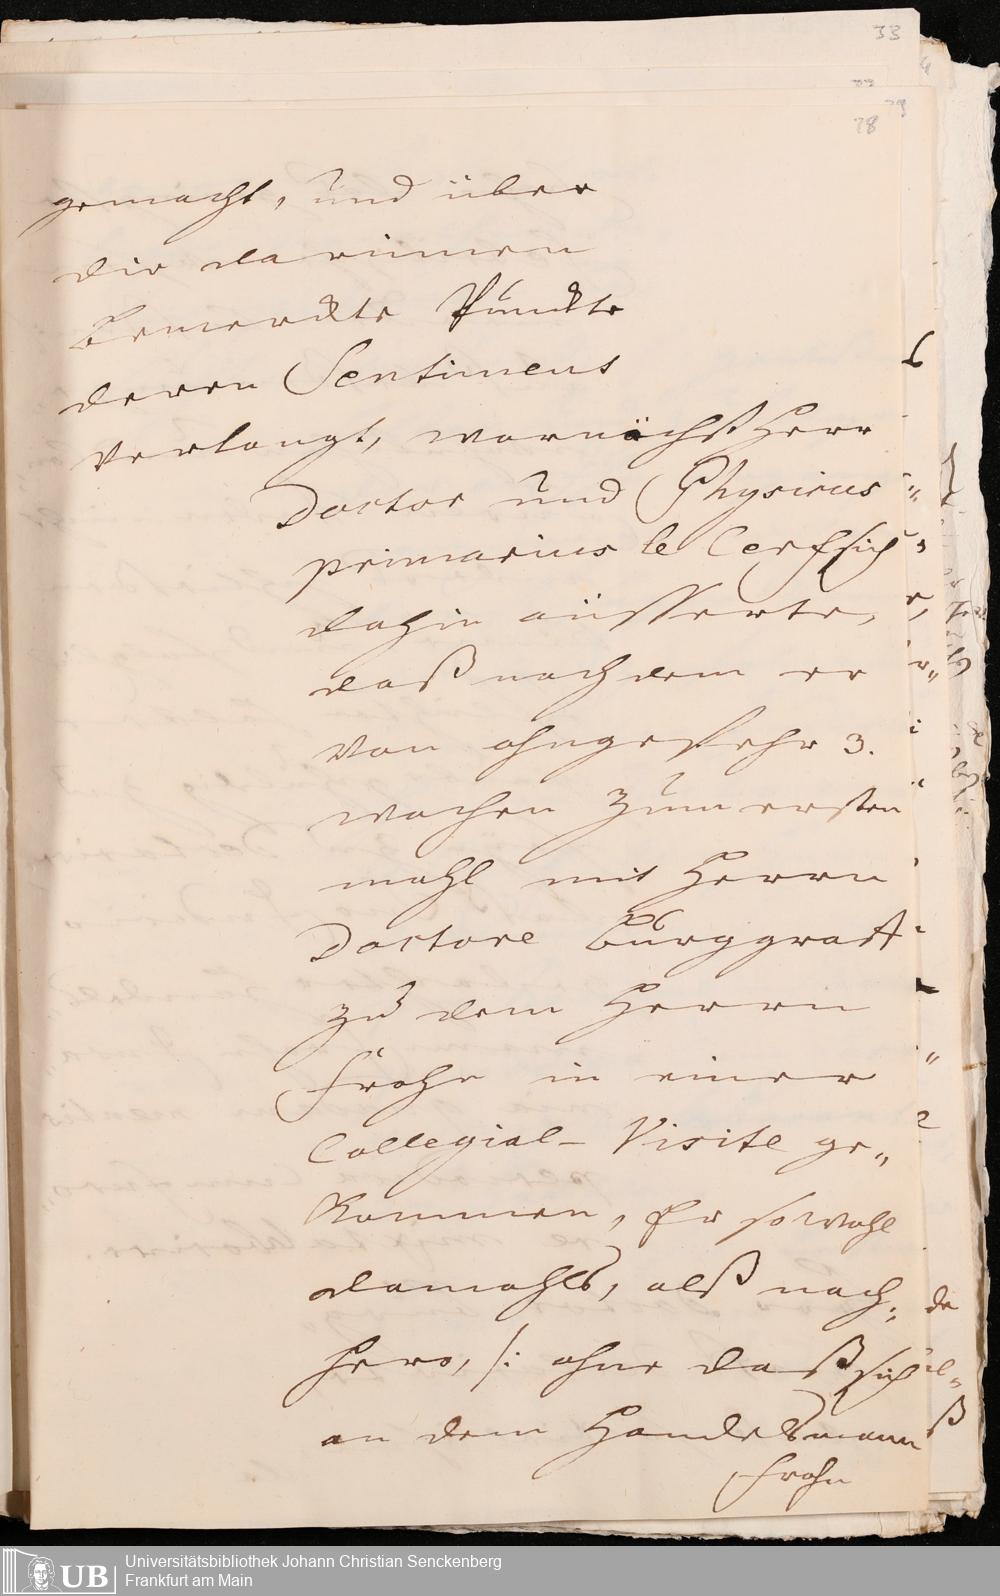 33
29
28
gemacht, und über
die darinnen
bemerckte Punckte
deren Sentiment
verlangt, wornächst Herr
Doctor und Physicus
primarius le Cerf sich
dahin äüsserte,
daß nachdem er
von ohngefehr 3.
wochen zum ersten
mahl mit Herrn
Doctore Burggraff
zu dem Herrn
Frohn in einer
Collegial-Visite ge„
kommen, Er sowohl
damahls, alß nach„
hero, /: ohne daß sich
an dem Handelsmann
Frohn
Universitätsbibliothek Johann Christian Senckenberg
Frankfurt am Main
UB